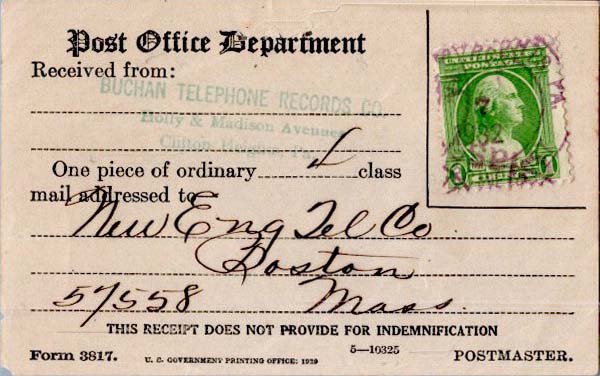 Post Office Department
Received from:
BUCHAN TELEPHONE RECORDS CO.
Holly & Madison Avenues
Clifton Heights, Pa.
UNITED STATES
POSTAGE
1932
1 1
One piece of ordinary class
mail addressed to
New Eng Tel Co
Boston
57558 Mass.
THIS RECEIPT DOES NOT PROVIDE FOR INDEMNIFICATION
Form 3817. U. S. GOVERNMENT PRINTING OFFICE: 1929 5—10325 POSTMASTER.